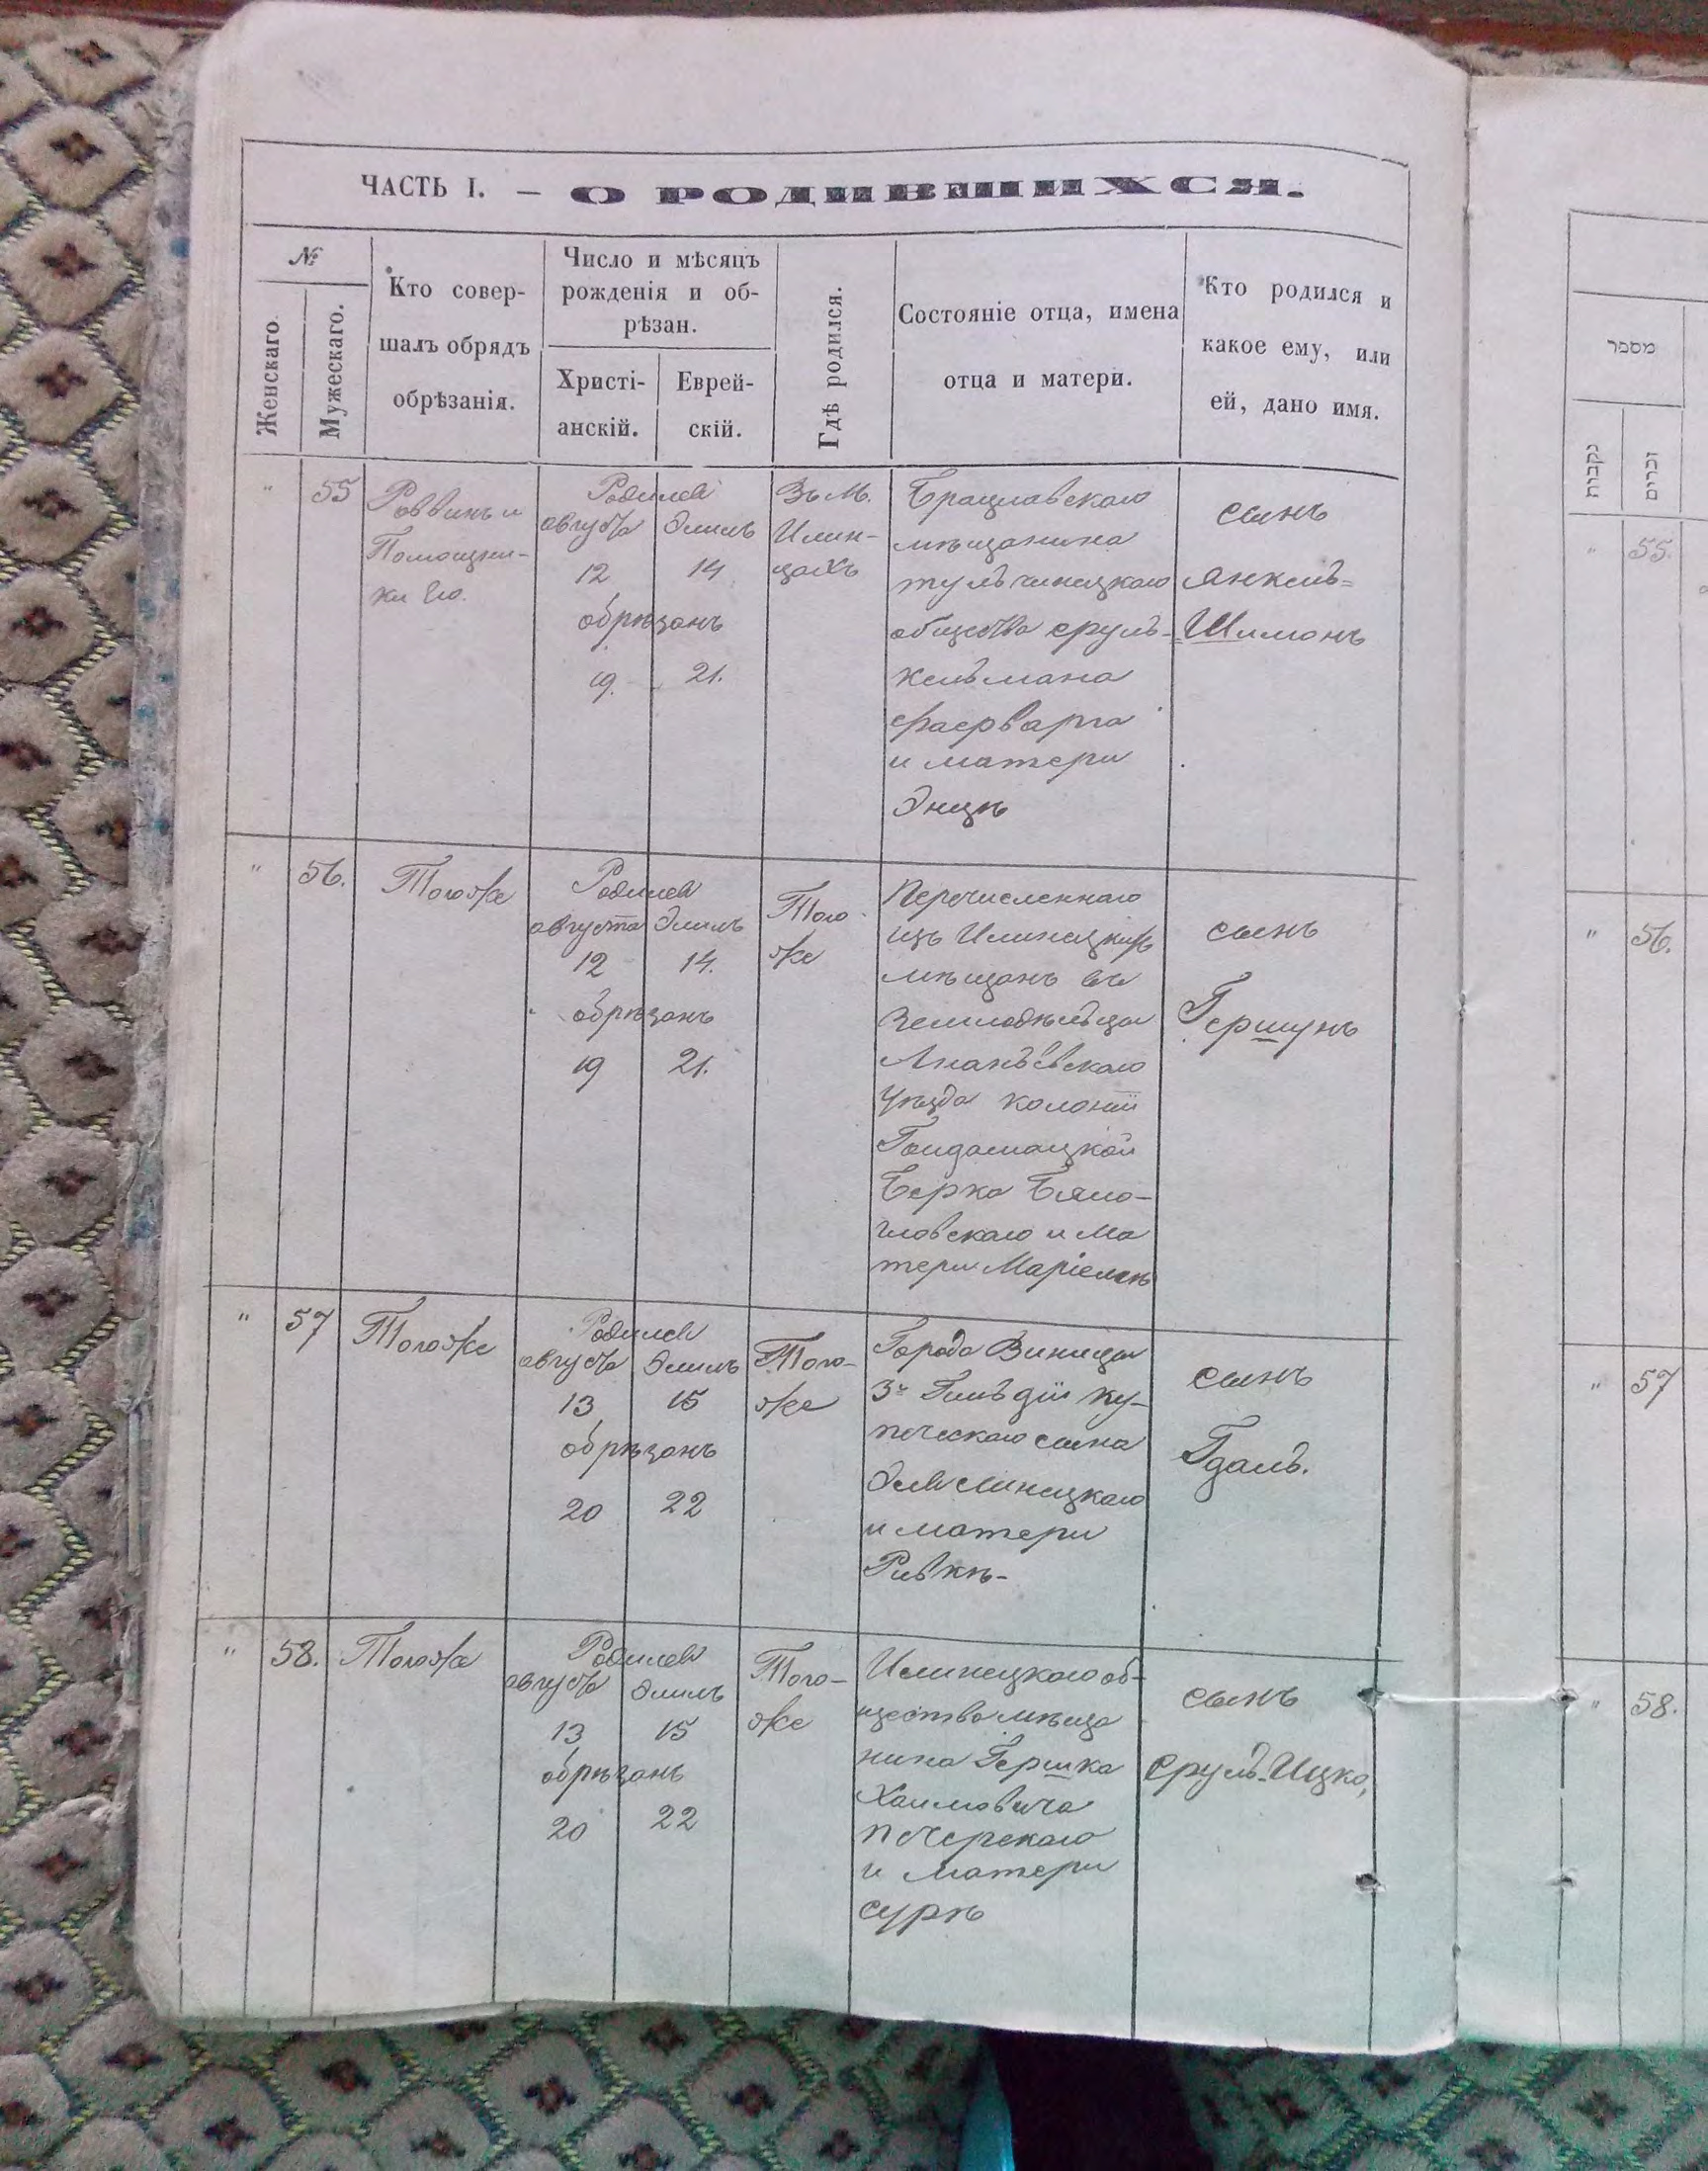 ЧАСТЬ I. — О РОДИВШИХСЯ.
№
Женскаго.
Мужескаго.
Кто совер-
шалъ обрядъ
обрѣзанія.
Число и мѣсяцъ
рожденія и об-
рѣзан.
Христі-
анскій.
Еврей-
скій.
Гдѣ родился.
Состояніе отца, имена
отца и матери.
Кто родился и
какое ему, или
ей, дано имя.
" 55
Раввинъ и
Помощни-
ки Его.
Родился
августа Элиль
12 14
обрѣзанъ
19. 21.
Въ М.
Илин-
цахъ
Брацлавскаго
мѣщанина
тульчинецкаго
общества сруль-
кельмана
фаерварга
и матери
Энцѣ
сынъ
янкель=
=Шимонъ
" 56.
Тогоже
Родился
августа Элиль
12 14.
обрѣзанъ
19 21.
Того
же
Перечисленнаго
изъ Илинецкихъ
мѣщанъ въ
Земледѣльцы
Ананьевскаго
Уѣзда колоніи
Гайдамацкой
Берка
и ма
тери
сынъ
Гершунъ
" 57
Тогоже
Родился
августа Элиль
13 15
обрѣзанъ
20 22
Того-
же
Города Виницы
3й Гильдіи ку-
печескаго сына
Эля Линецкаго
и матери
Ривкѣ-
сынъ
Гдаль.
" 58.
Тогоже
Родился
августа Элиль
13 15
обрѣзанъ
20 22
Того-
же
Илинецкаго об-
щества мѣща
нина Гершка
Хаимовича
печерскаго
и матери
сурѣ
сынъ
Сруль-Ицко,
מספר
נקבות
זכרים
" 55.
" 56.
" 57
" 58.